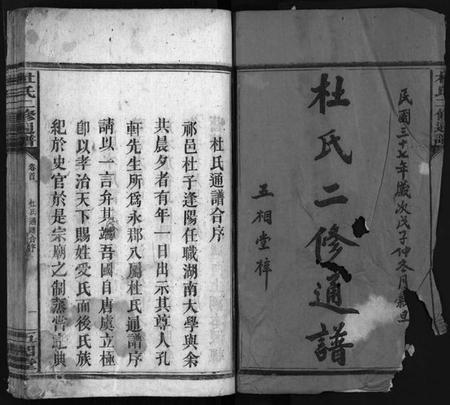 民國三十七年歲次戊子仲冬月穀旦
杜氏二修通譜
五相堂梓
杜氏通譜合序
祁邑杜子逢陽任職湖南大學與余
共晨夕者有年一日出示其尊人孔
軒先生所為永郡八屬杜氏通譜序
請以一言弁其端吾國自唐虞立極
卽以孝治天下賜姓受氏而後氏族
紀於史官於是宗廟之制蒸嘗之典
杜氏二修通譜
卷首
杜氏通譜合序
一
五相堂
杜氏二修通譜